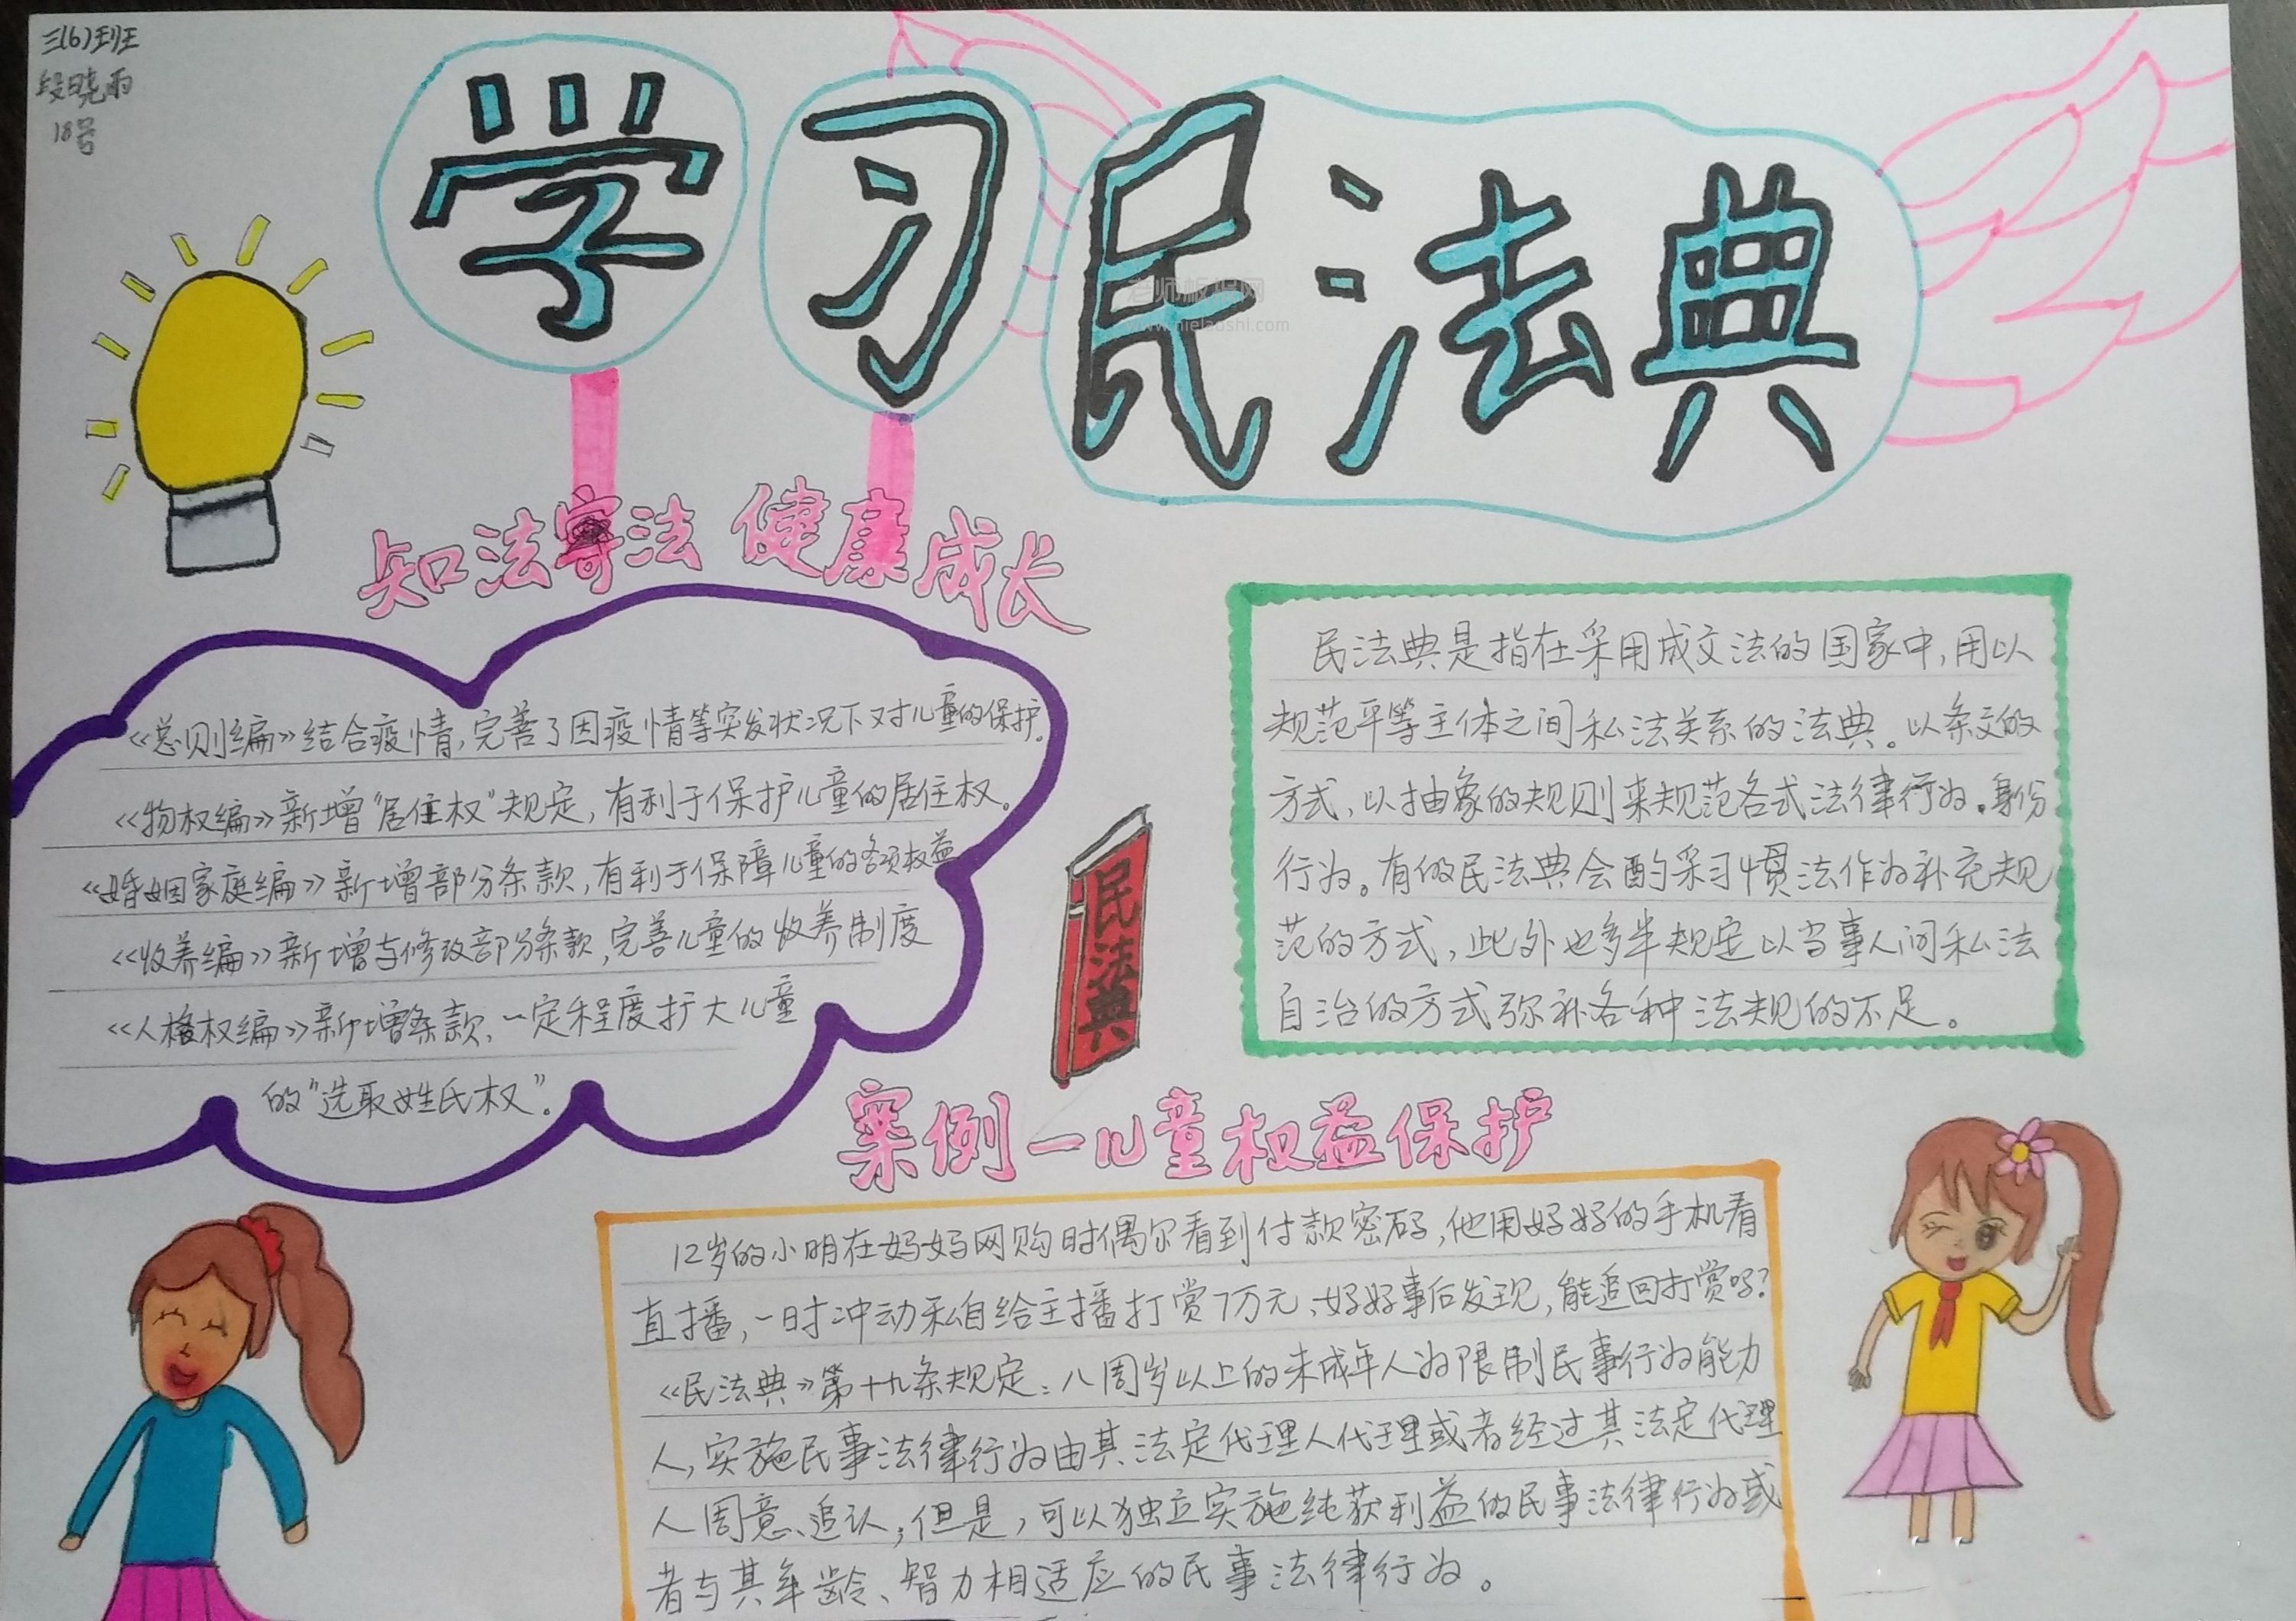 三(6)班
段晓雨
18号
学习民法典
知法守法 健康成长
《总则编》结合疫情,完善了因疫情等突发状况下对儿童的保护。
《物权编》新增"居住权"规定,有利于保护儿童的居住权。
《婚姻家庭编》新增部分条款,有利于保障儿童的各项权益
《收养编》新增与修改部分条款,完善儿童的收养制度
《人格权编》新增条款、一定程度扩大儿童
的"选取姓氏权"。
民法典是指在采用成文法的国家中,用以
规范平等主体之间私法关系的法典。以条文的
方式、以抽象的规则来规范各式法律行为、身份
行为。有的民法典会酌采习惯法作为补充规
范的方式,此外也多半规定以当事人间私法
自治的方式弥补各种法规的不足。
民法典
案例一儿童权益保护
12岁的小明在妈妈网购时偶尔看到付款密码,他用好好的手机看
直播,一时冲动私自给主播打赏7万元、好好事后发现,能追回打赏吗?
《民法典》第十九条规定:八周岁以上的未成年人为限制民事行为能力
人,实施民事法律行为由其法定代理人代理或者经过其法定代理
人周意、追认,但是,可以独立实施纯获利益的民事法律行为或
者与其年龄、智力相适应的民事法律行为。
老师板报网